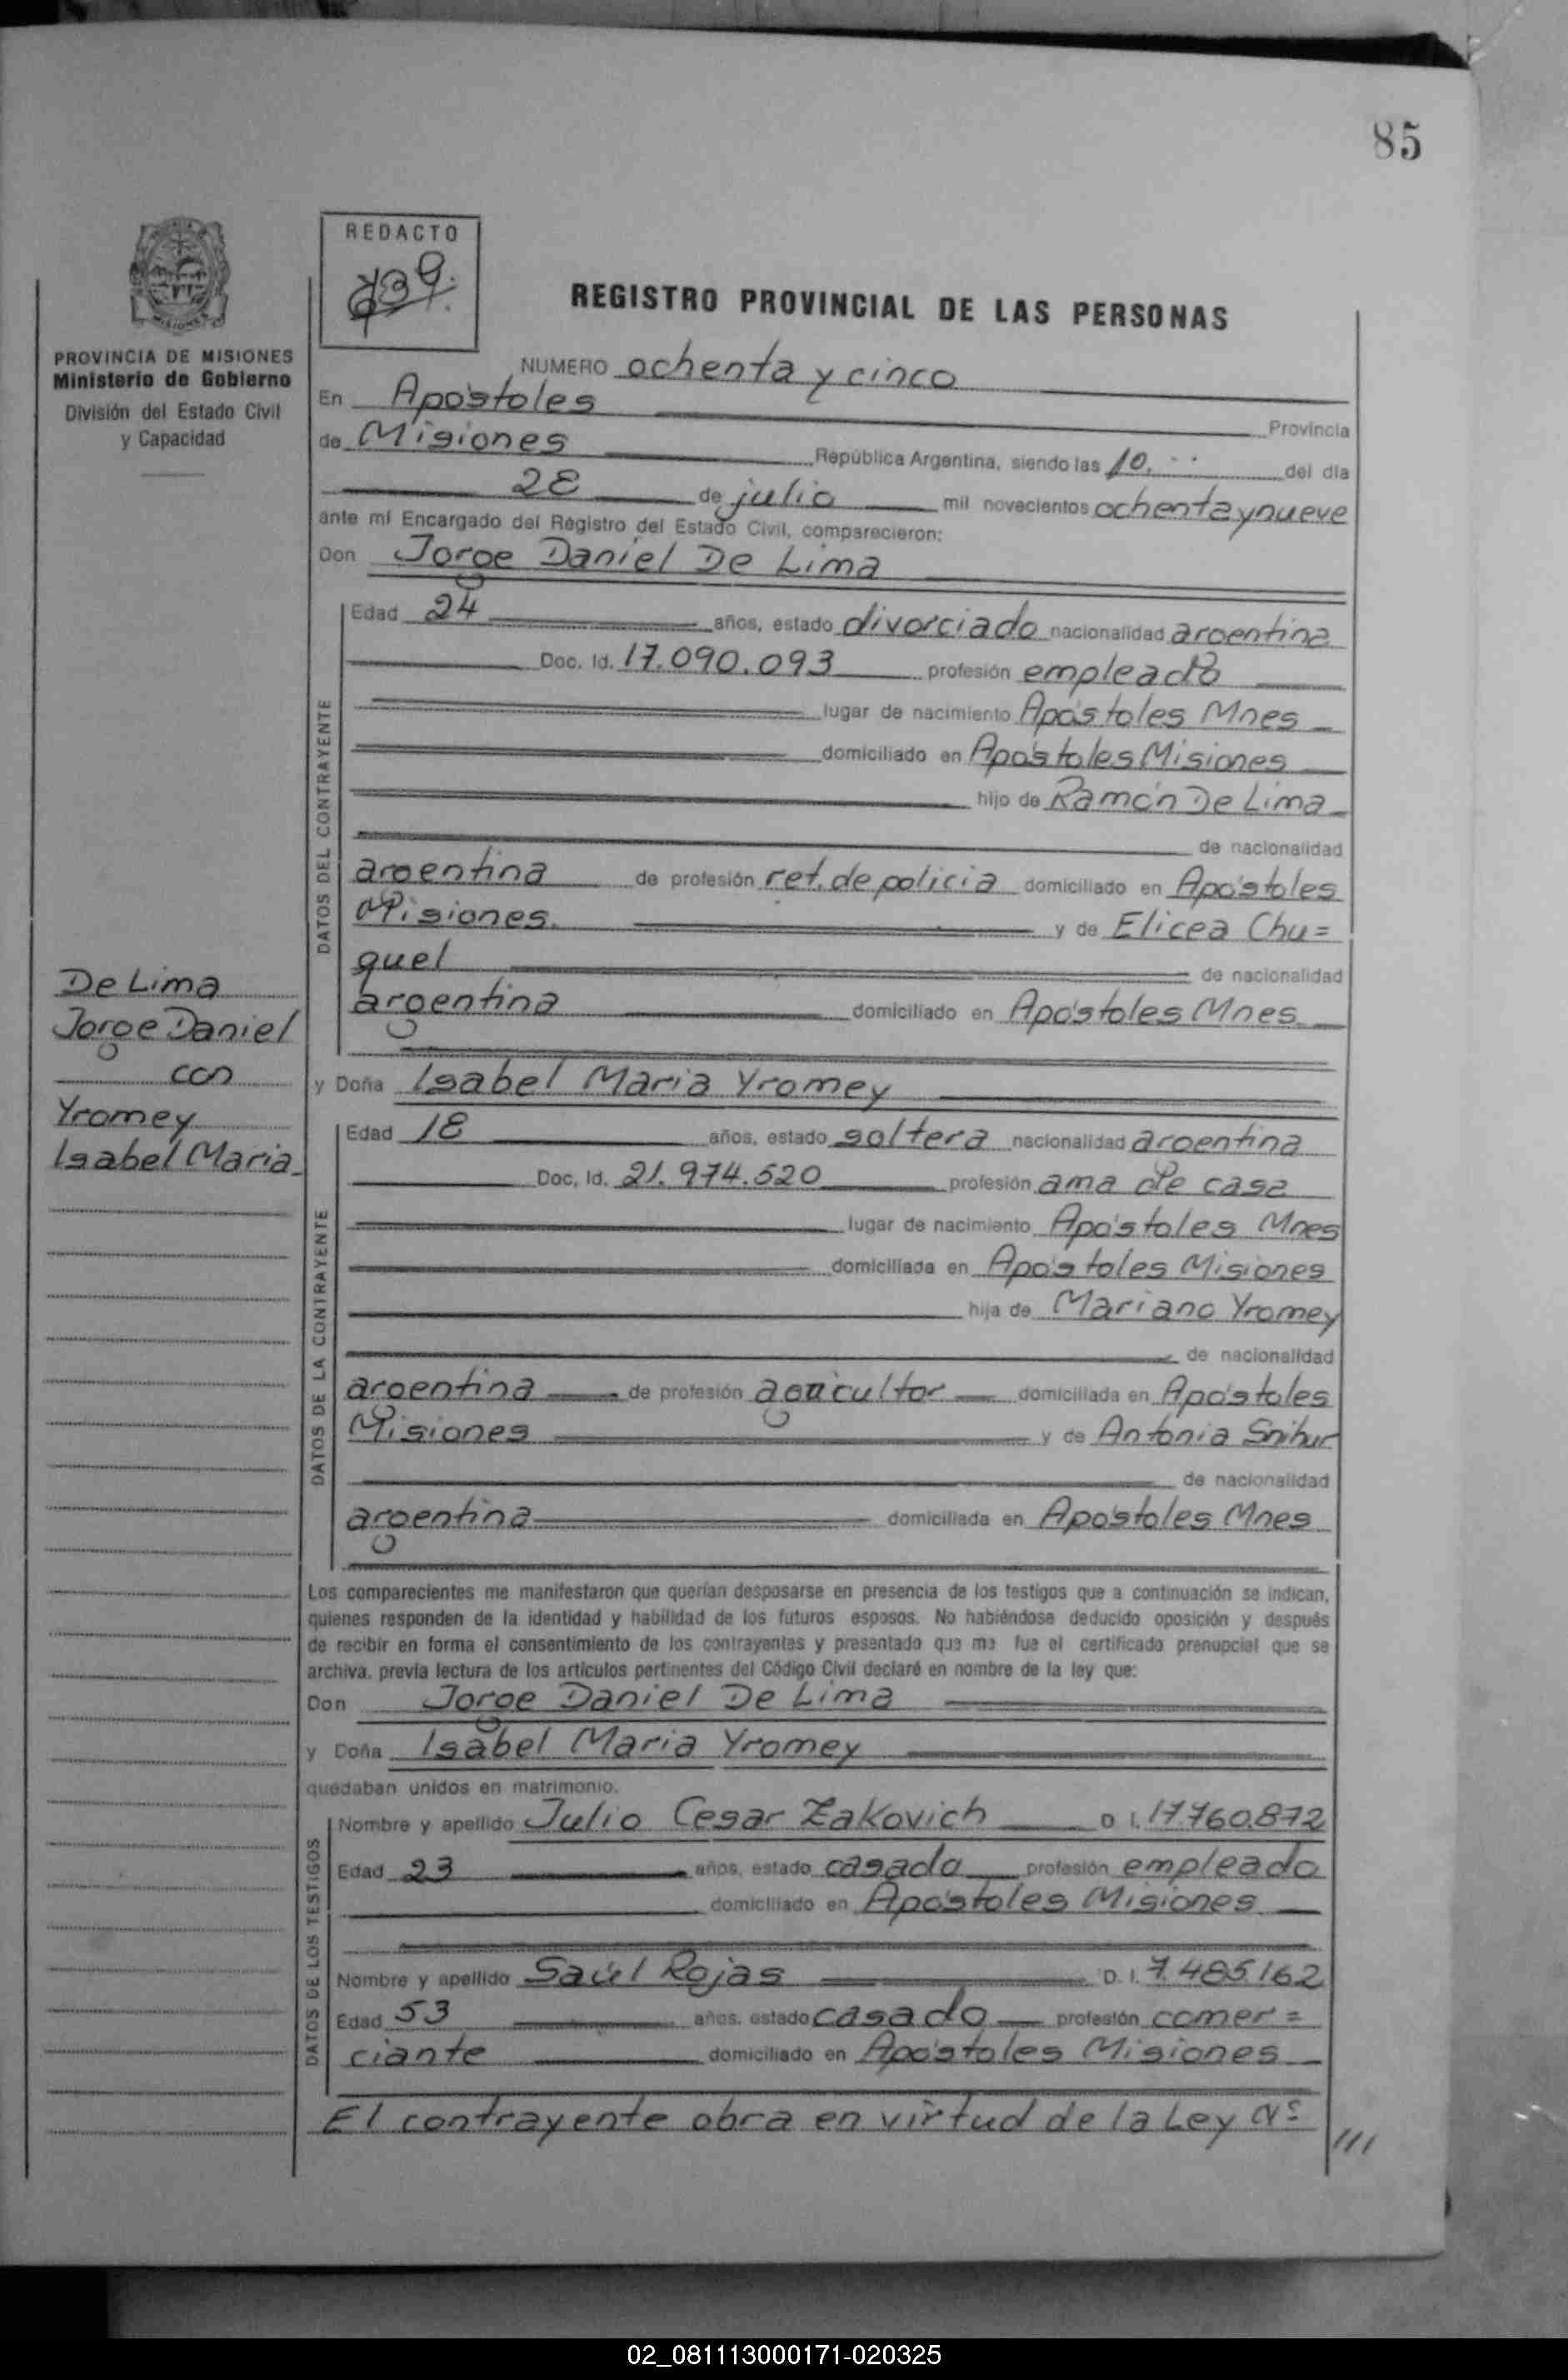 85
REDACTO
PROVINCIA DE MISIONES
Ministerio de Gobierno
División del Estado Civil
y Capacidad
REGISTRO PROVINCIAL DE LAS PERSONAS
NUMERO ochenta y cinco
En Apóstoles Provincia
de Misiones República Argentina, siendo las 10, del día
28 de julio mil novecientos ochenta y nueve
ante mí Encargado del Registro del Estado Civil, comparecieron:
Don Jorge Daniel De Lima
DATOS DEL CONTRAYENTE
Edad 24 años, estado divorciado nacionalidad argentina
Doc. Id. 17.090.093 profesión empleado
lugar de nacimiento Apóstoles Mnes
domiciliado en Apóstoles Misiones
hijo de Ramón De Lima
de nacionalidad
argentina de profesión ret. de policia domiciliado en Apóstoles
Misiones. y de Elicea Chu=
quel de nacionalidad
argentina domiciliado en Apóstoles Mnes
De Lima
Jorge Daniel
con
Yromey
Isabel Maria
y Doña Isabel Maria Yromey
DATOS DE LA CONTRAYENTE
Edad 18 años, estado soltera nacionalidad argentina
Doc. Id. 21.974.520 profesión ama de casa
lugar de nacimiento Apóstoles Mnes
domiciliada en Apóstoles Misiones
hija de Mariano Yromey
de nacionalidad
argentina de profesión agricultor domiciliada en Apóstoles
Misiones y de Antonia Snihur
de nacionalidad
argentina domiciliada en Apóstoles Mnes
Los comparecientes me manifestaron que querían desposarse en presencia de los testigos que a continuación se indican,
quienes responden de la identidad y habilidad de los futuros esposos. No habiéndose deducido oposición y después
de recibir en forma el consentimiento de los contrayentes y presentado que me fue el certificado prenupcial que se
archiva, previa lectura de los artículos pertinentes del Código Civil declaré en nombre de la ley que:
Don Jorge Daniel De Lima
y Doña Isabel Maria Yromey
quedaban unidos en matrimonio.
DATOS DE LOS TESTIGOS
Nombre y apellido Julio Cesar Zakovich D I. 17.760.872
Edad 23 años, estado casado profesión empleado
domiciliado en Apóstoles Misiones
Nombre y apellido Saúl Rojas D. I. 7.485.162
Edad 53 años, estado casado profesión comer=
ciante domiciliado en Apóstoles Misiones
El contrayente obra en virtud de la Ley Nº ///
02_081113000171-020325